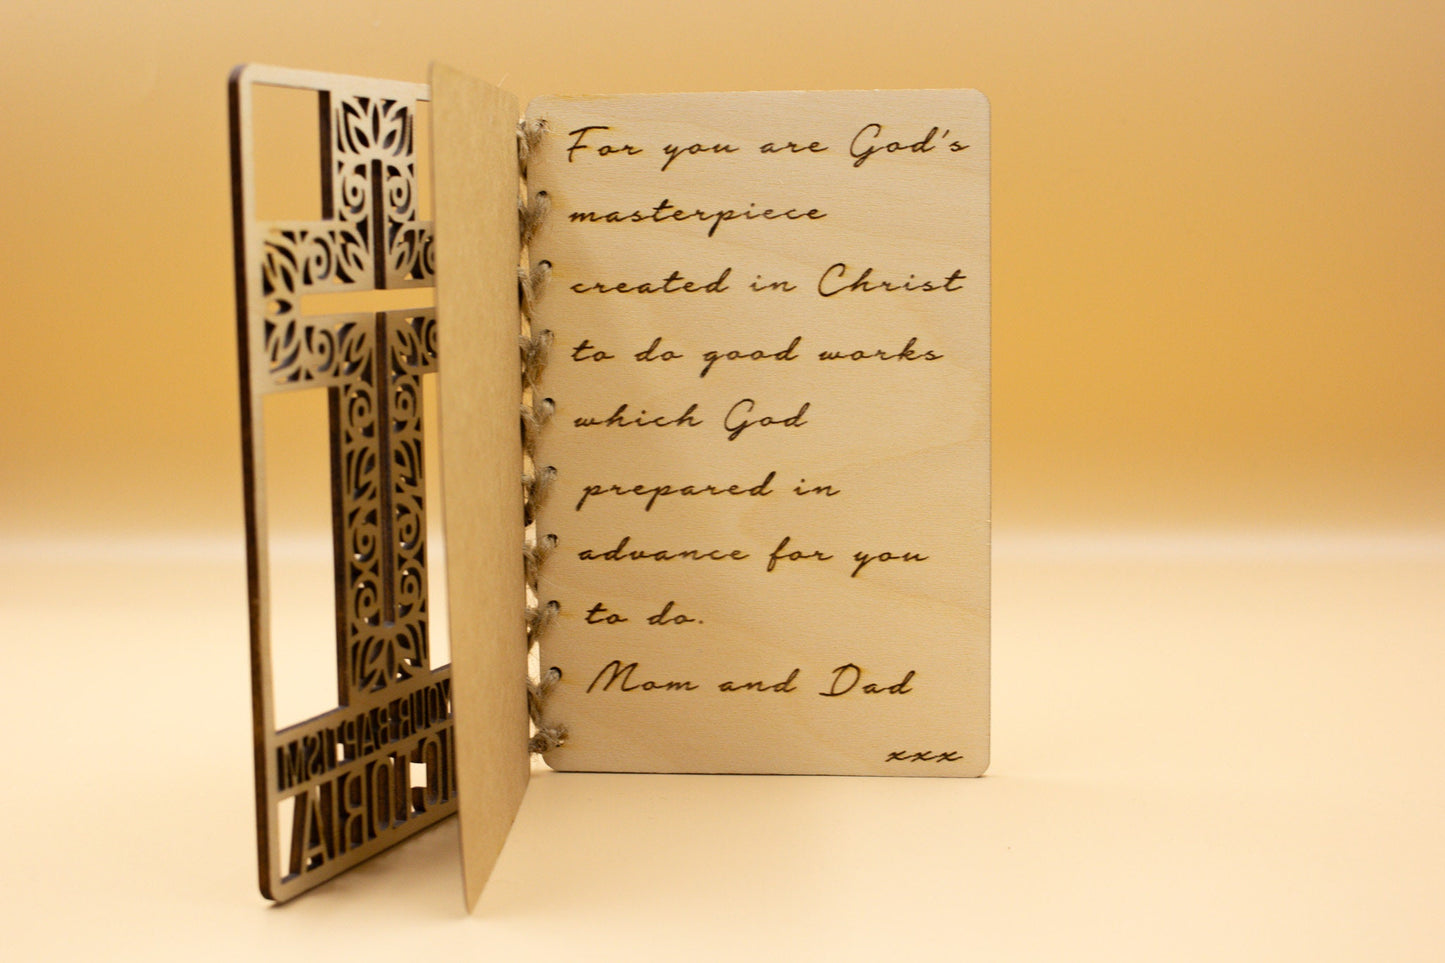 YOUR BAPTISM
VICTORIA
For you are God's
masterpiece
created in Christ
to do good works
which God
prepared in
advance for you
to do.
Mom and Dad
xxx